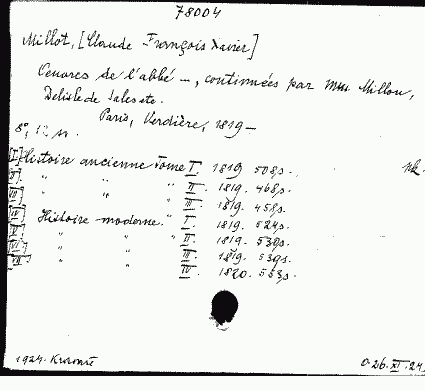 78004
Millot, [Claude François Xavier]
Oeuvres de l'abbé —, continuées par MM. Millon,
Delisle de Sales etc.
Paris, Verdière, 1819 —
8°, 12
[I] Histoire ancienne Tome I. 1819 508 p.
[II] " " " II. 1819. 468 p.
[III] " " " III. 1819. 458 p.
[IV] Histoire moderne. " I. 1819. 524 p.
[V] " " " II. 1819. 530 p.
[VI] " " III. 1819. 539 p.
[VII] " " IV. 1820. 553 p.
1924.
26. XI. 24